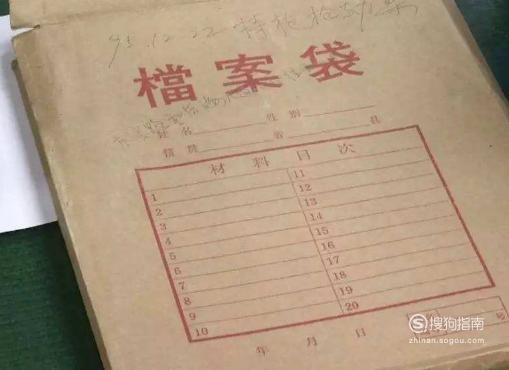 95.12.22 特
檔案袋
姓名 性别
籍贯 省 县
材料目次
1 11
2 12
3 13
4 14
5 15
6 16
7 17
8 18
9 19
10 20
年 月 日
号
搜狗指南
zhinan.sogou.com